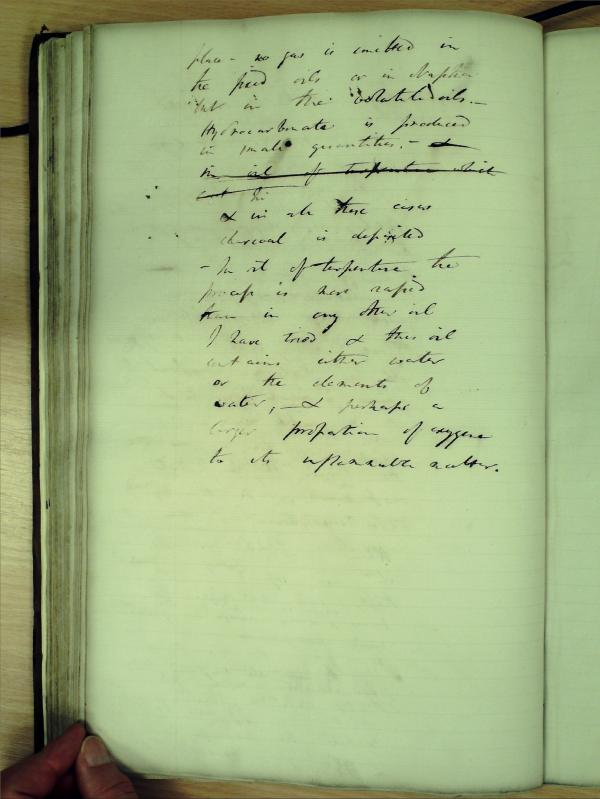 place - no gas is emitted in
the fixed oils or in Naptha
but in the volatile oils. -
Hydrocarbonate is produced
in small quantities. - &
in oil of turpentine which
& in all these cases
charcoal is deposited
- In oil of terpentine the
process is more rapid
than in any other oil
I have tried & this oil
contains either water
or the elements of
water, - & perhaps a
larger proportion of oxygene
to its inflammable matter.